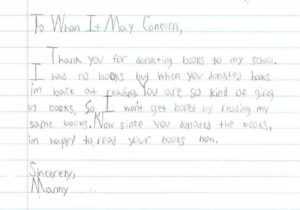 To Whom It May Concurn,
Thank you for donating books to my school.
I had no books but when you donated books
im back at reading. You are so kind of giving
us books, So, I won't get bored by reading my
same books. Now since you donated the books,
im happy to read your books now.
Sincerely,
Manny